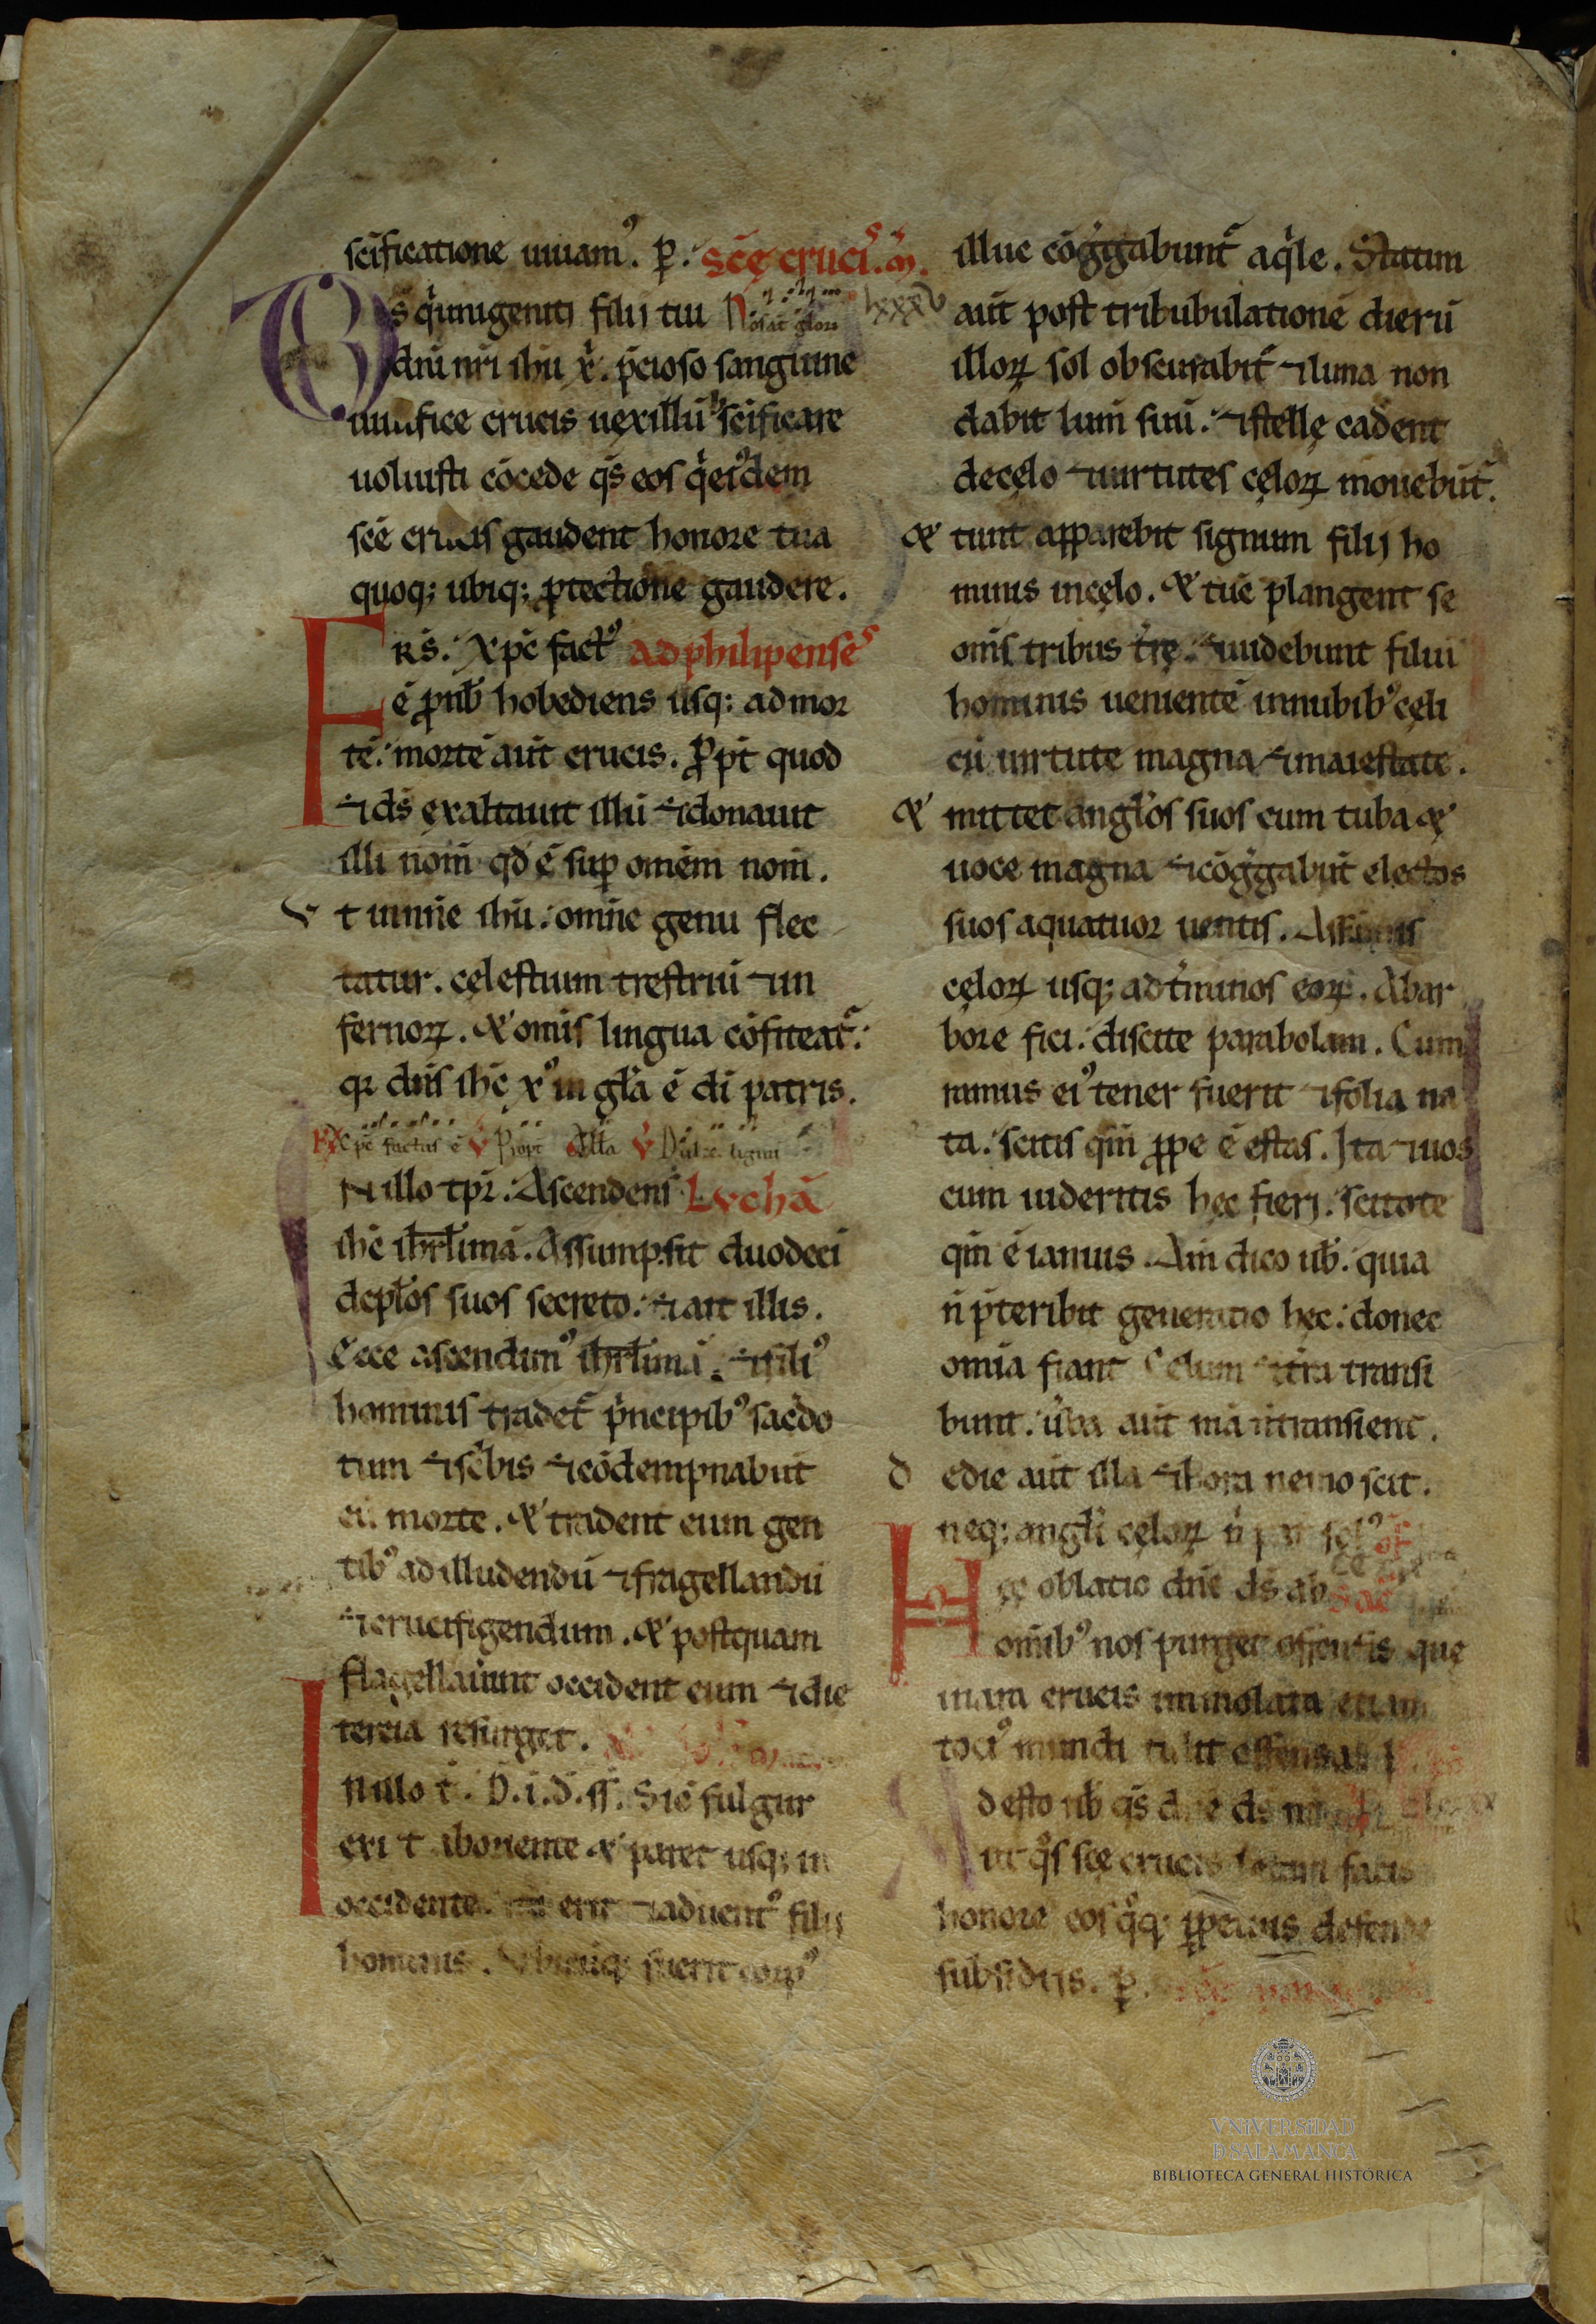 scificatione uiuam⁹. ꝑ. Scę cruci⁹. m̄.
Ds q̇ unigeniti filij tui Nos aut glori lxxxv
dn̄i nr̄i ihu x̄. p̄cioso sanguine
uiuifice crucis uexillū scificare
uoluisti cōcede q̄s eos q̇ ei⁹dem
scē crucis gaudent honore tua
quoq; ubiq; ꝓtectione gaudere.
FRS̄. Xpc̄ fact⁹ ad philipense⁹
ē ꝓ nob̄ hobediens usq; ad mor
tē. mortē aūt crucis. Ꝓpt̄ quod
⁊ ds̄ exaltauit illū ⁊ donauit
illi nom̄ qd̄ ē sup om̄em nom̄.
Vt innn̄e ihū. omn̄e genu flec
tatur. cęlestium trestriū ⁊ in
fernoꝝ. & om̄is lingua cōfiteat᷑.
qꝛ dn̄s ihc̄ x⁹ in gl̄a ē dī patris.
R̄ Xpc̄ factus ē V̄ Propt̄ All̄a V̄ Dulce lignū
IN illo tp̄r. Ascendens Luchā
ihc̄ ihrl̄imā. Assumpsit duodecī
discipl̄os suos secreto. ⁊ ait illis.
Ecce ascendim⁹ ihrl̄imā. ⁊ fili⁹
hominis tradet᷑ p̄ncipib⁹ sacerdo
tum ⁊ sc̄bis ⁊ cōdempnabūt
eū morte. & tradent eum gen
tib⁹ ad illudendū ⁊ fragellandū
⁊ crucifigendum. & postquam
flagellauunt occident eum ⁊ die
tercia resurget.
IN illo t̄. D. i. d. ss̄. Sic fulgur
exi t ab oriente & paret usq; in
occidente. ita erit ⁊ aduent⁹ filij
hominis. Vbicūq; fuerit corp⁹
illuc cōg̈gabunt᷑ aq̇le. Statim
aūt post tribubulationē dierū
illoꝝ sol obscurabit᷑ ⁊ luna non
dabit lum̄ suū. ⁊ stellę cadent
de cęlo ⁊ uirtutes cęloꝝ mouebūt᷑.
& tunt apparebit signum filij ho
minis in cęlo. & tūc plangent se
om̄s tribus tr̄ę. ⁊ uidebunt filiū
hominis uenientē in nubib⁹ cęli
cū uirtute magna ⁊ maiestate.
& mittet angl̄os suos cum tuba &
uoce magna ⁊ cōg̈gabūt electos
suos a quatuor uentis. A sūmis
cęloꝝ usq; ad t̄minos eoꝝ. Ab ar
bore fici. discite parabolam. Cum
ramus ei⁹ tener fuerit ⁊ folia na
ta. scitis qm̄ ꝓpe ē estas. Ita ⁊ uos
cum uideritis hęc fieri. scitote
qm̄ ē ianuis. Am̄ dico uob̄. quia
n̄ p̄teribit generatio hęc. donec
om̄ia fiant Celum ⁊ tr̄a transi
bunt. ūba aūt mā n̄ transient.
De die aūt illa ⁊ hora nemo scit.
neq; angl̄i cęloꝝ n̄ pat̄ sol⁹ of
Hęc oblatio dn̄e ds̄ ab sac̄
om̄ib⁹ nos purget offensis que
in ara crucis immolata etiam
toci⁹ mundi tulit offensa
desto nob̄ q̄s dn̄e ds̄ nr̄
ut q̊s scę crucis letari facis
honore eos q̊q; ꝑpetuis defende
subsidijs. ꝑ.
VNIVERSIDAD
D SALAMANCA
BIBLIOTECA GENERAL HISTÓRICA